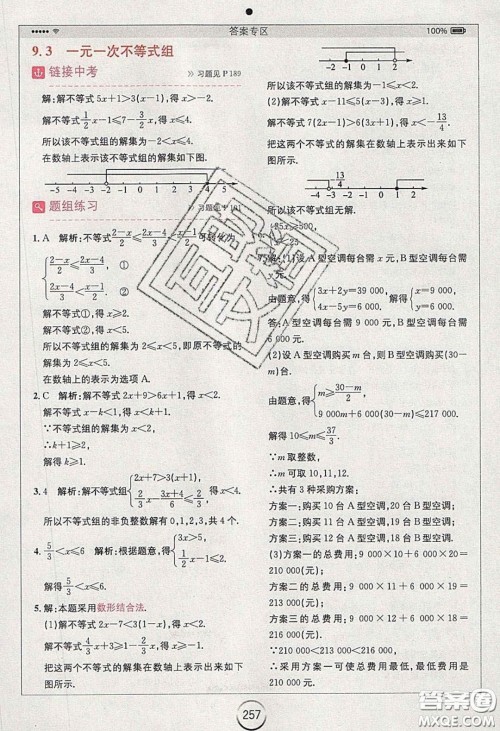 答案专区
100%
9.3 一元一次不等式组
链接中考
习题见P189
解:解不等式5x+1>3(x-1),得x>-2.
解不等式1/2x-1≤7-3/2x,得x≤4.
所以该不等式组的解集为-2<x≤4.
在数轴上表示该不等式组的解集如下图.
-5 -4 -3 -2 -1 0 1 2 3 4 5
题组练习
1. A 解析:不等式(2-x)/2≤(2x-4)/3<
{(2-x)/2≤(2x-4)/3, ①
(2x-4)/3<2. ②
解不等式①,得x≥2.
解不等式②,得x<5.
所以不等式组的解集为2≤x<5,即原不等式的
解集为2≤x<5.
在数轴上的表示为选项A.
2. C 解析:解不等式2x+9>6x+1,得x<2.
解不等式x-k<1,得x<k+1.
所以不等式组的解集为x<2.
∴k+1≥2,
解得k≥1.
3. 4 解析:解不等式组{2x+7>3(x+1),
2/3x-(3x+4)/6≤2/3,
所以不等式组的非负整数解有0,1,2,3,共4个.
4. 5/3<x≤6 解析:根据题意,得{3x>5,
解得5/3<x≤6.
5. 解:本题采用数形结合法.
(1)解不等式2x-7<3(1-x),得x<2.
解不等式4/3x+3≥1-2/3x,得x≥-1.
把这两个不等式的解集在数轴上表示出来如下图.
-2 -1 0 1 2 3
所以该不等式组的解集为-1≤x<2.
(2)解不等式x-11≤5(x-3),得x≥1.
解不等式7(2x-1)>6(3x+1),得x<-13/4.
把这两个不等式的解集在数轴上表示出来如下
图所示.
所以该不等式组无解.
(1)设A型空调每台需x元,B型空调每台需
y元.
由题意,得{3x+2y=39 000, 解得{x=9 000,
4x-5y=6 000, y=6 000.
答:A型空调每台需9 000元,B型空调每台需
6 000元.
(2)设A型空调购买m台,则B型空调购买(30-
m)台.
由题意,得{m≥(30-m)/2,
9 000m+6 000(30-m)≤217 000.
解得10≤m≤37/3.
∵m取整数,
∴m可取10,11,12.
∴共有3种采购方案:
方案一:购买10台A型空调,20台B型空调;
方案二:购买11台A型空调,19台B型空调;
方案三:购买12台A型空调,18台B型空调.
(3)方案一的总费用:9 000×10+6 000×20=
210 000(元);
方案二的总费用:9 000×11+6 000×19=
213 000(元);
方案三的总费用:9 000×12+6 000×18=
216 000(元).
∵210 000<213 000<216 000,
∴采用方案一可使总费用最低,最低费用是
210 000元.
257
答案圈
MXQE.COM